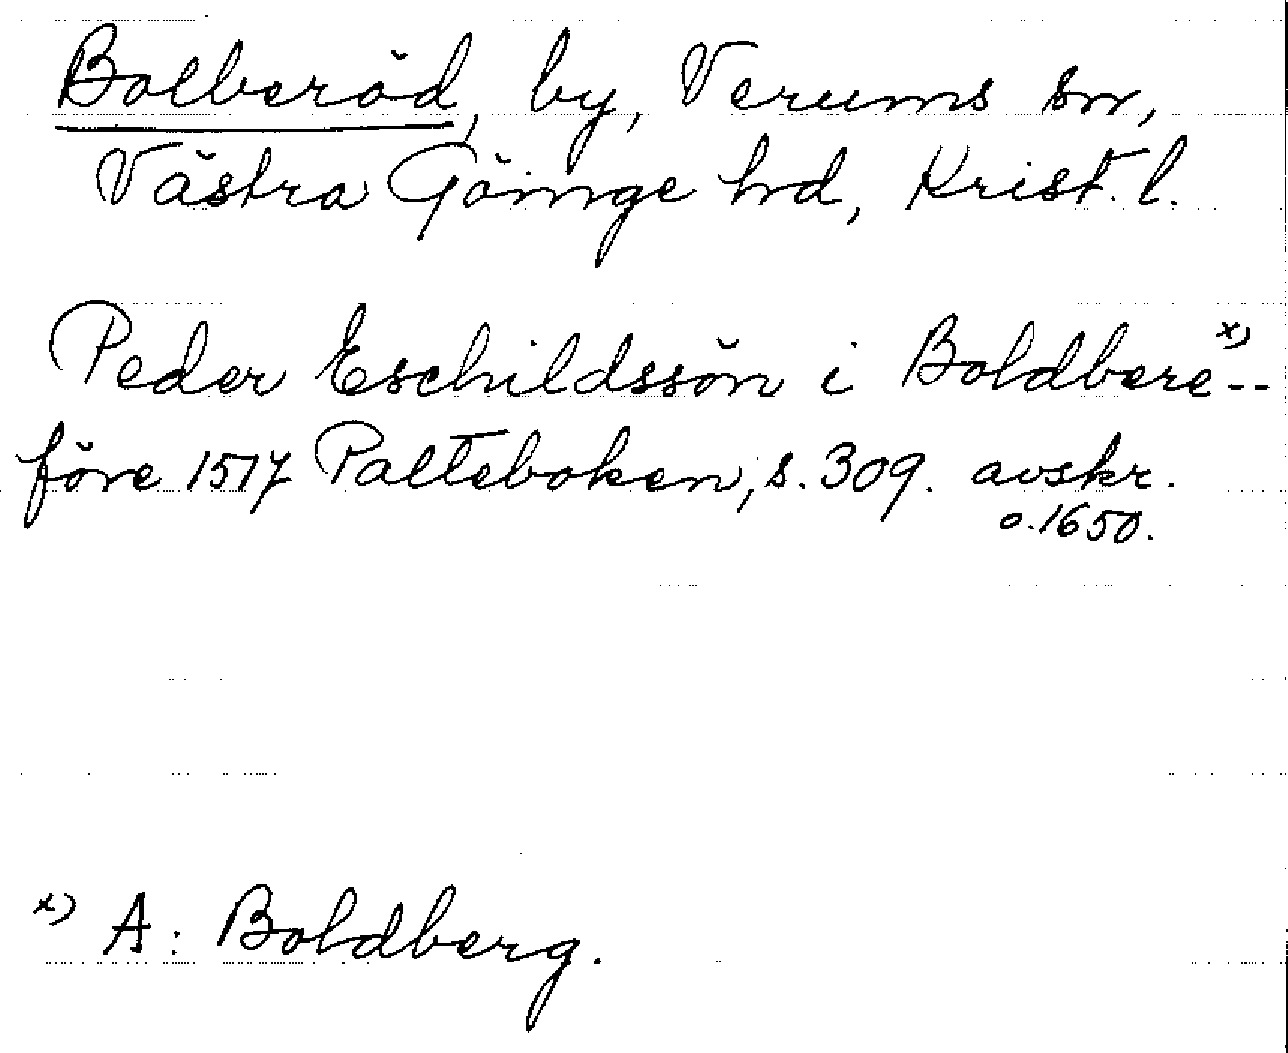 Bolberöd, by, Verums sn,
Västra Göinge hd, Krist. l.
Peder Eschildssön i Boldbere-- x)
före 1517 Palteboken, s. 309. avskr.
o. 1650.
x) A: Boldberg.